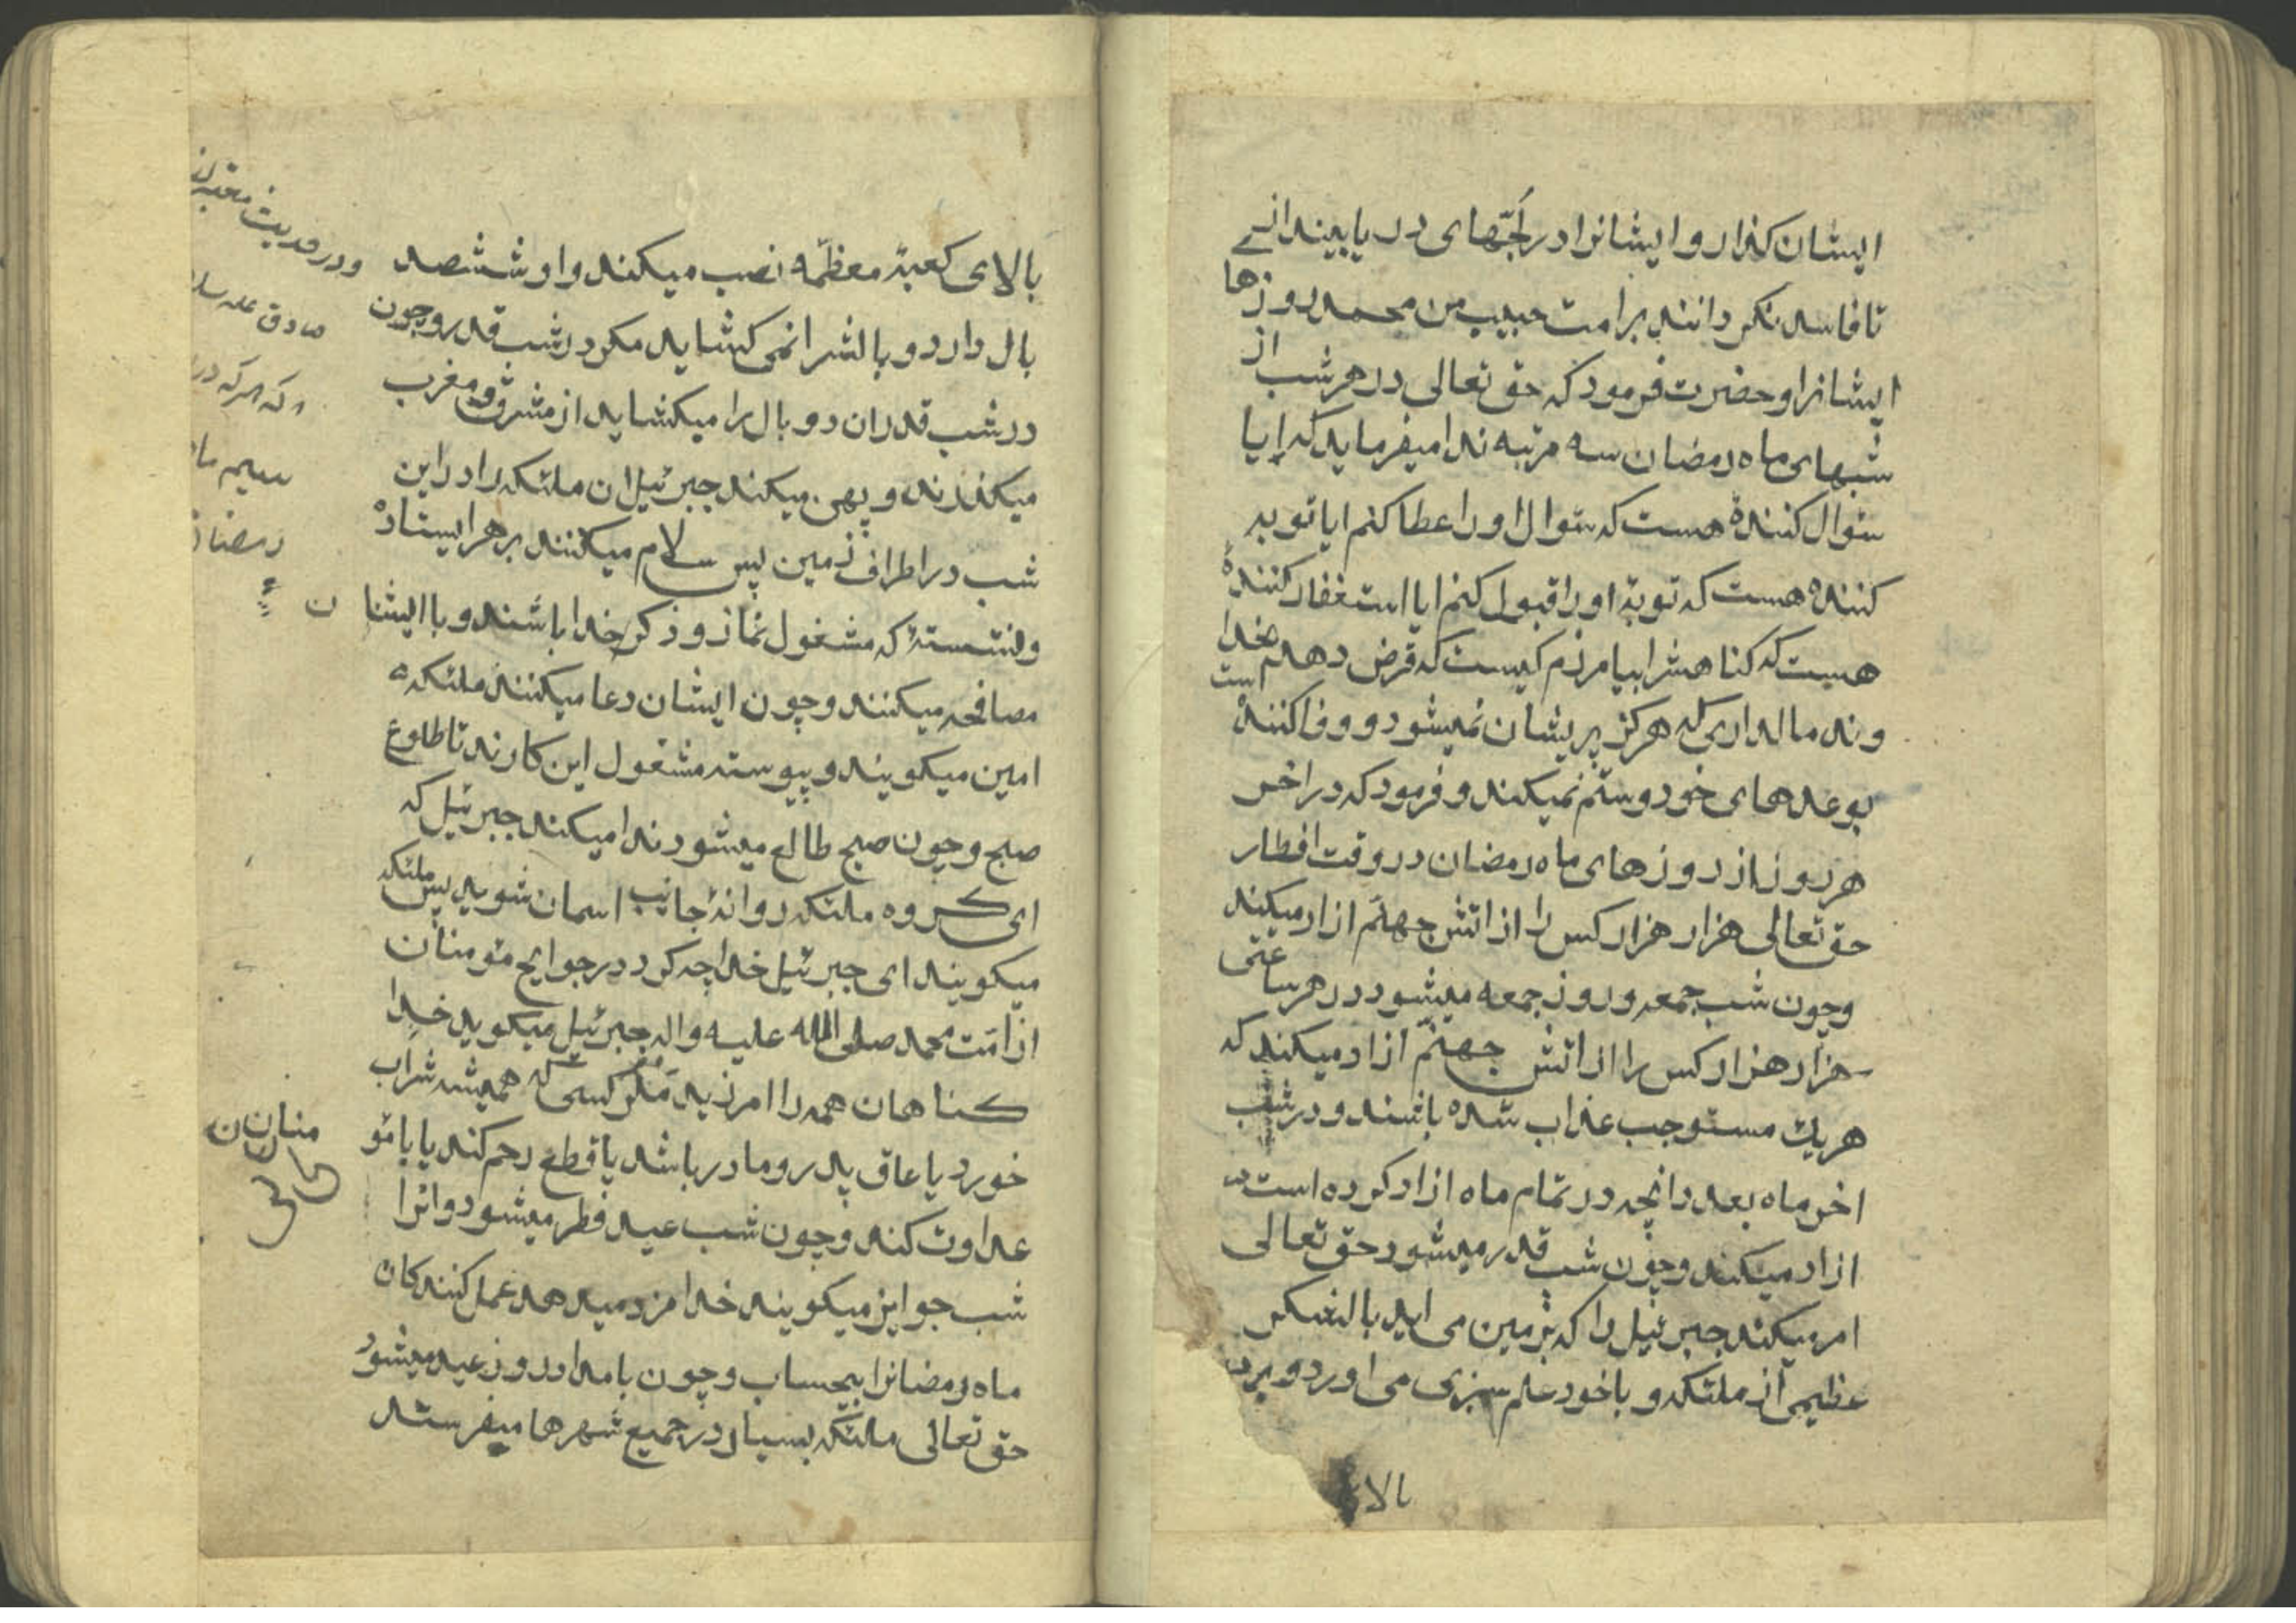 ایشان کذار و ایشانرا در لُجّهای دریا بینداز
تا فاسد نکردانند بر امت حبیب من محمد روزها
ایشانرا و حضرت فرمود که حق تعالی در هر شب از
شبهای ماه رمضان سه مرتبه ندا میفرماید که ایا
سٶال کنندۀ هست که سٶال او را عطا کنم ایا توبه
کننده هست که توبۀ او را قبول کنم ایا استغفار کنندۀ
هست که کناهش را بیامرزم کیست که قرض دهد بخدا
وند مالداری که هرکز پریشان نمیشود و وفا کنندۀ است
بوعدهای خود و ستم نمیکند و فرمود که در اخر
هر روز از روزهای ماه رمضان در وقت افطار
حق تعالی هزار هزار کس را از اتش جهنّم ازاد میکند
و چون شب جمعه و روز جمعه میشود در هر ساعتی
هزار هزار کس را از اتش جهنّم ازاد میکند که
هریك مستوجب عذاب شده باشند و در شب
اخر ماه بعدد انچه در تمام ماه ازاد کرده است
ازاد میکند و چون شب قدر میشود حق تعالی
امر میکند جبرئیل را که بزمین می اید با لشکر
عظیمی از ملئکه و با خود علم سبزی می اورد و بر
بالای
بالای کعبۀ معظّمه نصب میکند و او ششصد
بال دارد و بالش را نمی کشاید مکر در شب قدر و چون
در شب قدر ان دو بال را میکشاید از مشرق و مغرب
میکذرند و پهن میکند جبرئیل ان ملئکه را در این
شب در اطراف زمین پس سلام میکنند بر هر ایستادۀ
و نشستۀ که مشغول نماز و ذکر خدا باشند و با ایشا ن
مصافحه میکنند و چون ایشان دعا میکنند ملئکه
امین میکویند و پیوسته مشغول این کارند تا طلوع
صبح و چون صبح طالع میشود ندا میکند جبرئیل که
ای کروه ملئکه روانۀ جانب اسمان شوید پس ملئکه
میکویند ای جبرئیل خدا چه کرد در حوایج مٶمنان
از امّت محمد صلی الله علیه و اله جبرئیل میکوید خدا
کناهان همه را امرزید مکر کسی که همیشه شراب
خورد یا عاق پدر و مادر باشد یا قطع رحم کند یا با مٶ
منان
عداوت کند و چون شب عید فطر میشود و انرا
شب جوایز میکویند خدا مزد میدهد عمل کنندکان
ماه رمضانرا بیحساب و چون بامداد روز عید میشود
حق تعالی ملئکه بسیار در جمیع شهرها میفرستد
و در حدیث معتبر از
صادق علیه سلا
که هرکه در
رمضان